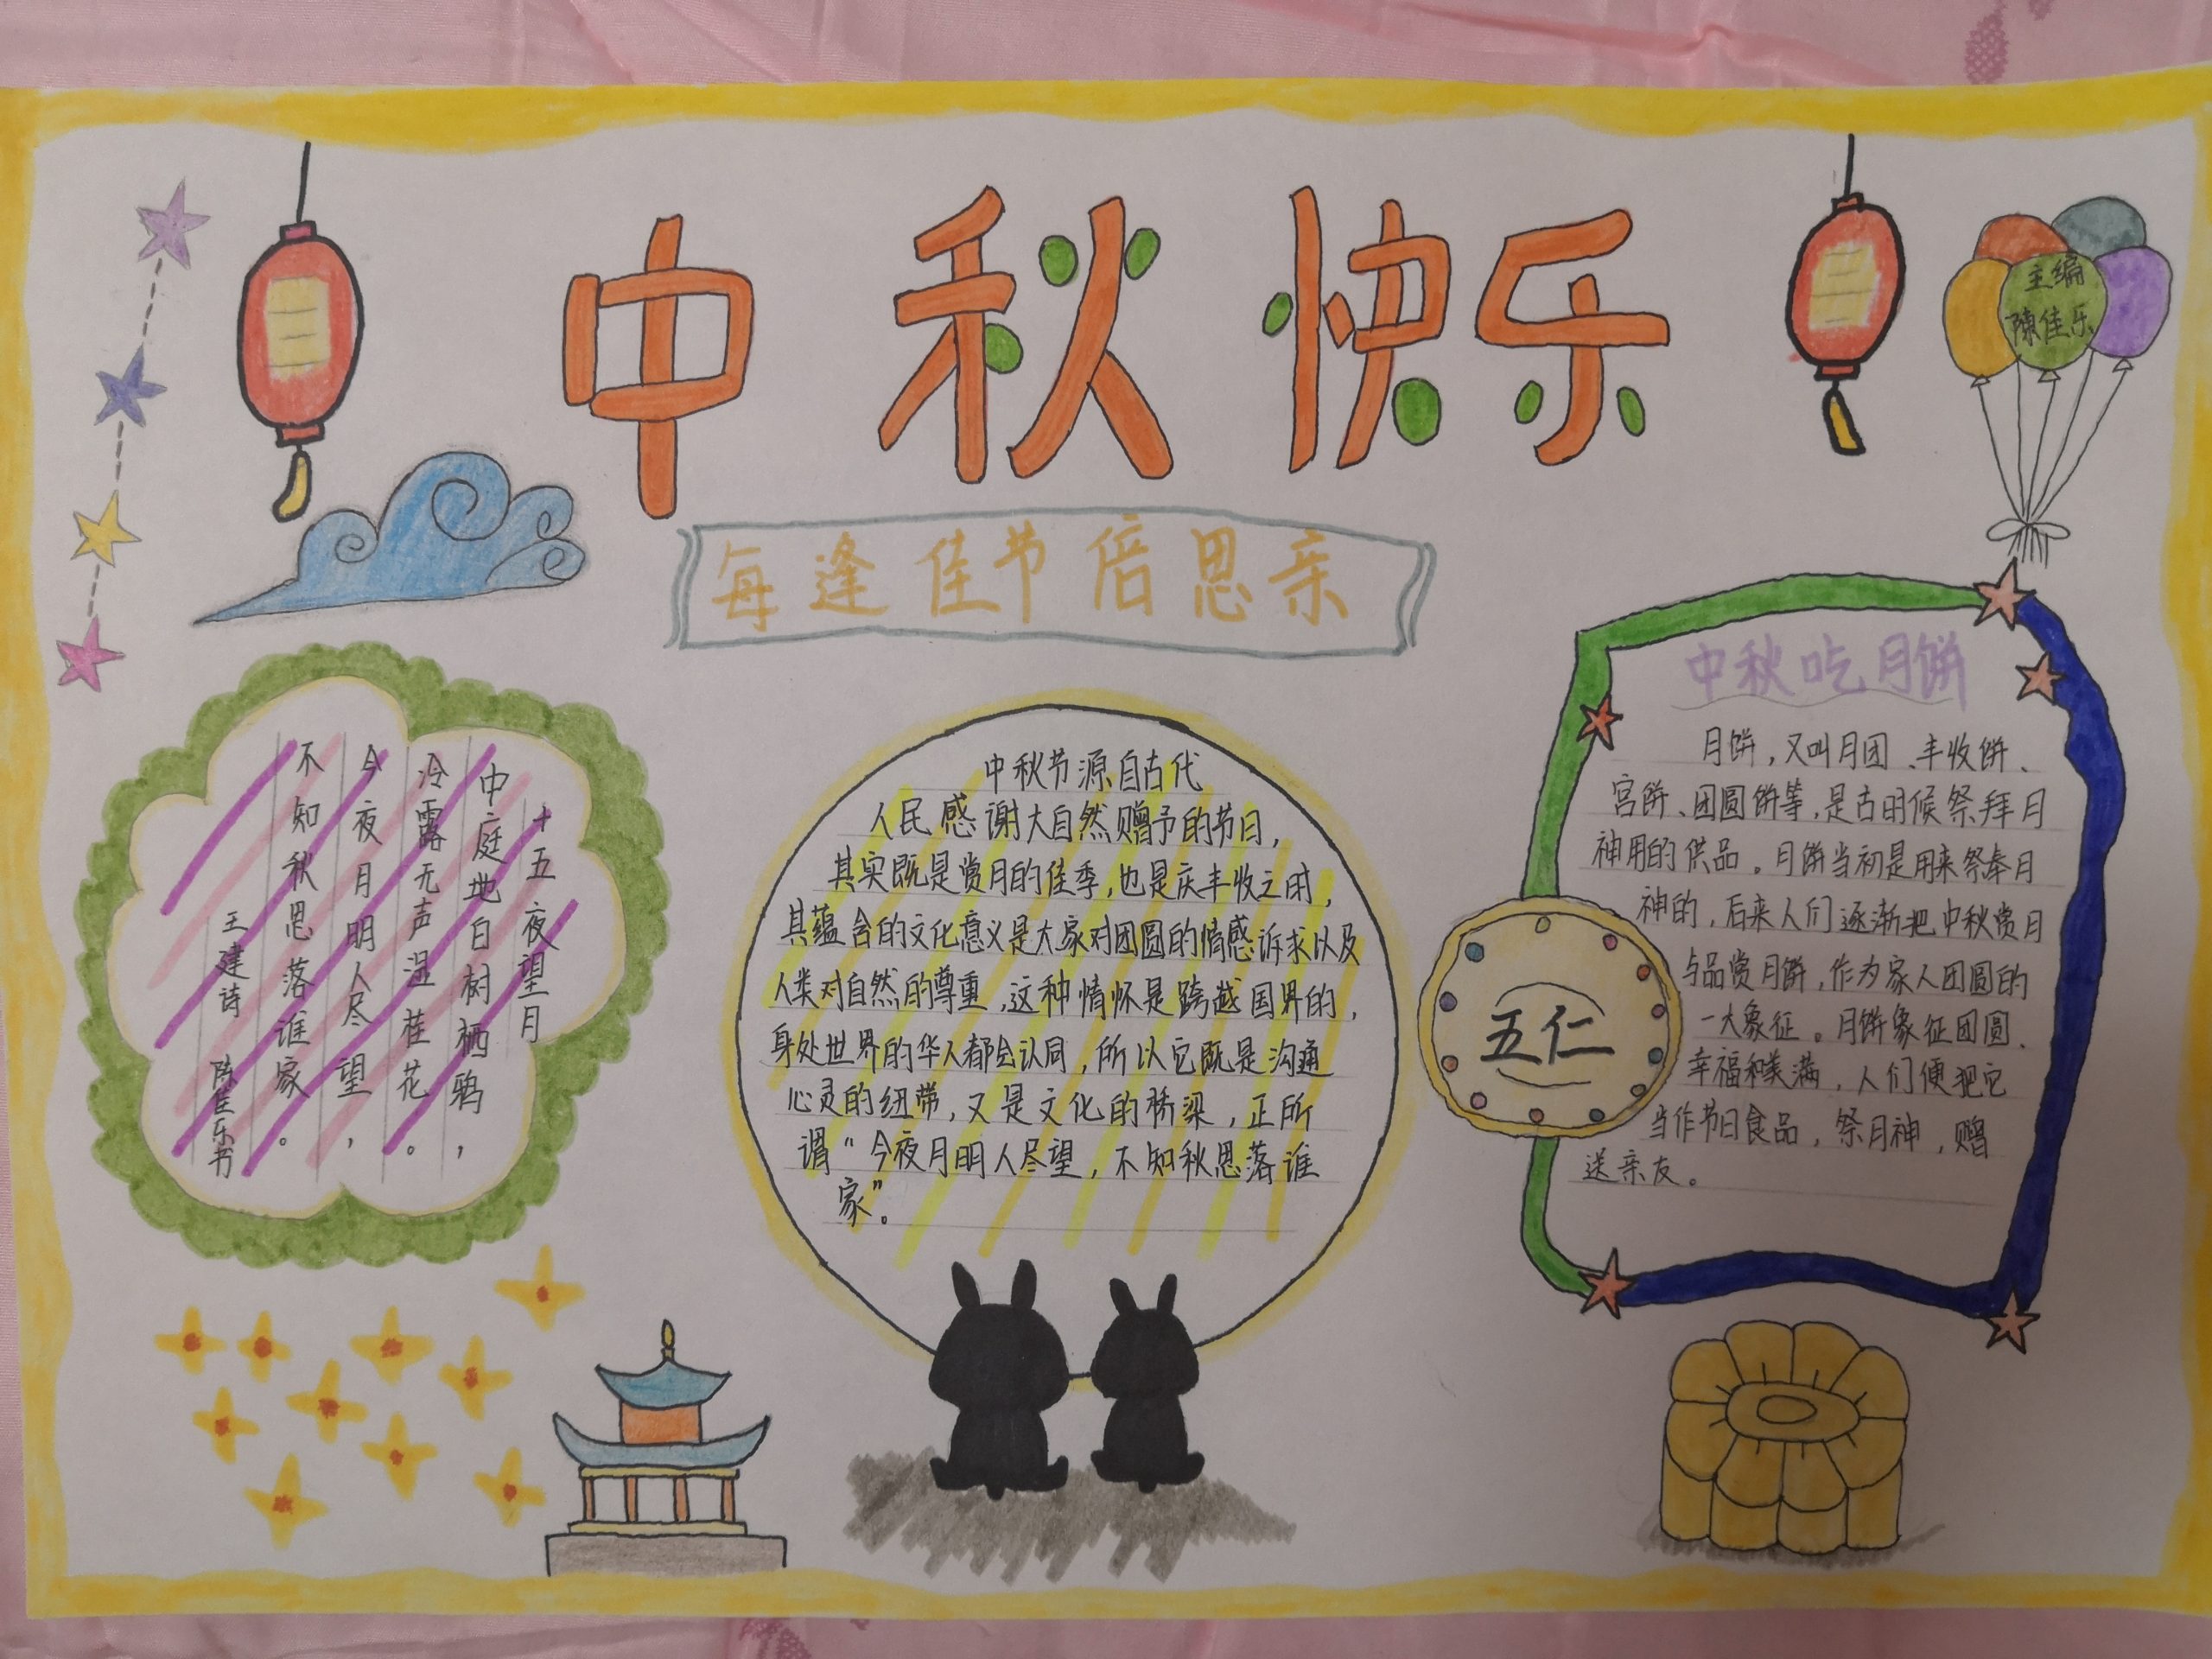 中秋快乐
主编
陈佳乐
每逢佳节倍思亲
十五夜望月
中庭地白树栖鸦，
冷露无声湿桂花。
今夜月明人尽望，
不知秋思落谁家。
王建诗
陈佳乐书
中秋节源自古代
人民感谢大自然赠予的节日，
其实既是赏月的佳季，也是庆丰收之时，
其蕴含的文化意义是大家对团圆的情感诉求以及
人类对自然的尊重，这种情怀是跨越国界的，
身处世界的华人都会认同，所以它既是沟通
心灵的纽带，又是文化的桥梁，正所
谓“今夜月明人尽望，不知秋思落谁
家”。
中秋吃月饼
月饼，又叫月团、丰收饼、
宫饼、团圆饼等，是古时候祭拜月
神用的供品。月饼当初是用来祭奉月
神的，后来人们逐渐把中秋赏月
与品赏月饼，作为家人团圆的
一大象征。月饼象征团圆、
幸福和美满，人们便把它
当作节日食品，祭月神，赠
送亲友。
五仁